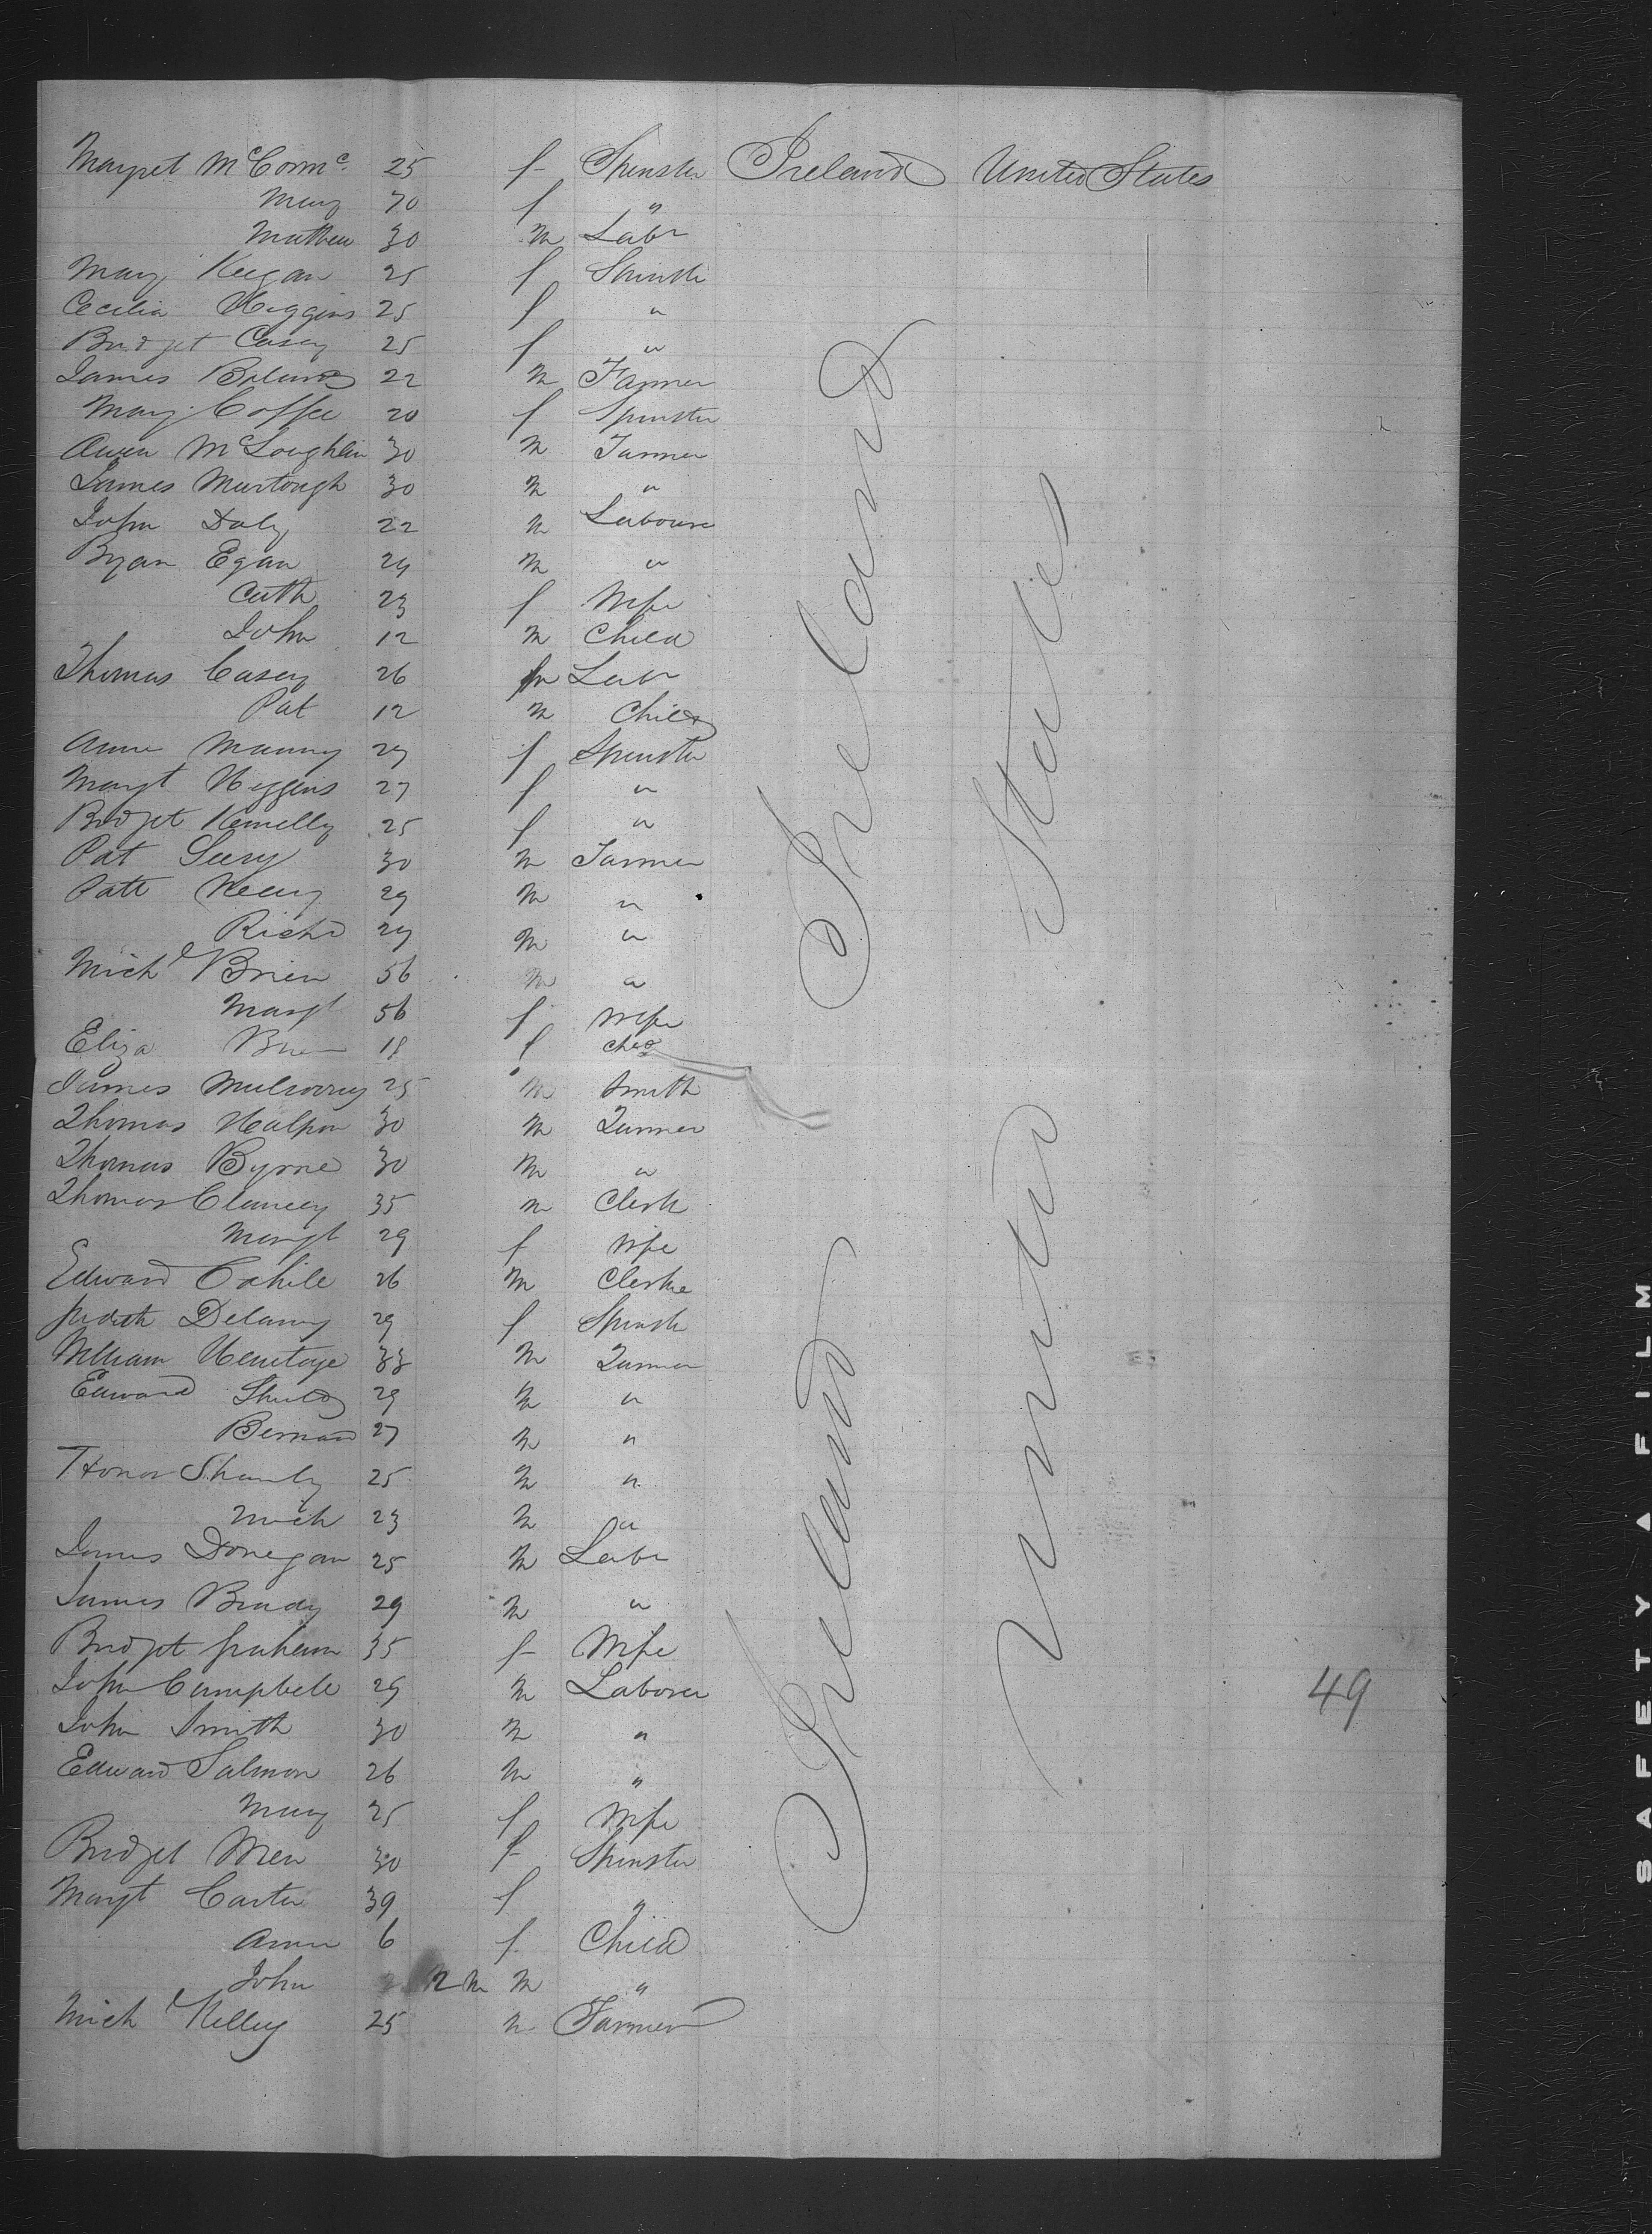 Margret McCormc. 25 f Spinster Ireland United States
Mary 70 f "
Mathew 30 m Labr
Mary Keegan 25 f Spinster
Cecilia Higgins 25 f "
Bridget Casey 25 f "
James 22 m Farmer
Mary Coffee 20 f Spinster
Owen McLoughlin 30 m Farmer
James Murtough 30 m "
John Daly 22 m Labourer
Bryan Egan 29 m "
Cath 23 f Wife
John 12 m Child
Thomas Casey 26 m Labr
Pat 12 m Child
Anne Manny 29 f Spinster
Margt Higgins 27 f "
Bridget Kennelly 25 f "
Pat Seery 30 m Farmer
Patt 29 m "
Richd 29 m "
Michl Brien 56 m "
Margt 56 f Wife
Eliza Brien 18 f Child
James Mulrooney 25 m Smith
Thomas Halpin 30 m Farmer
Thomas Byrne 30 m "
Thomas Clancey 35 m Clerk
Margt 29 f Wife
Edward Cahill 26 m Clerke
Judith Delany 29 f Spinster
William Hemitage 33 m Farmer
Edward Shields 29 m "
Bernard 27 m "
Honor Shanly 25 m "
Mich 23 m "
James Donegan 25 m Labr
James Brady 29 m "
Bridget Graham 35 f Wife
John Campbell 29 m Laborer
John Smith 30 m "
Edward Salmon 26 m "
Mary 25 f Wife
Bridget 30 f Spinster
Margt Carter 39 f "
Anne 6 f Child
John 2 m m "
Michl Kelley 25 m Farmer
Ireland
Ireland
United States
49
SAFETY FILM